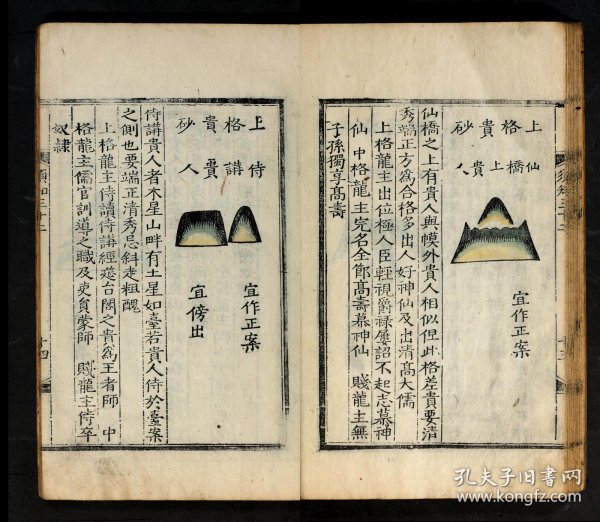 上格貴砂
仙橋上貴人
宜作正案
仙橋之上有貴人與幞外貴人相似但此格差貴要清
秀端正方為合格多出人好神仙及出清高大儒
上格龍主出位極人臣輕視爵祿屢詔不起志慕神
仙 中格龍主完名全節高壽慕神仙 賤龍主無
子孫獨享高壽
上格貴砂
侍講貴人
宜作正案
宜傍出
侍講貴人者木星山畔有土星如臺若貴人侍於臺案
之側也要端正清秀忌斜走粗醜
上格龍主侍讀侍講經筵台閣之貴為王者師 中
格龍主儒官訓導之職及吏員蒙師 賤龍主侍卒
奴隸
十四
孔夫子旧书网
www.kongfz.com